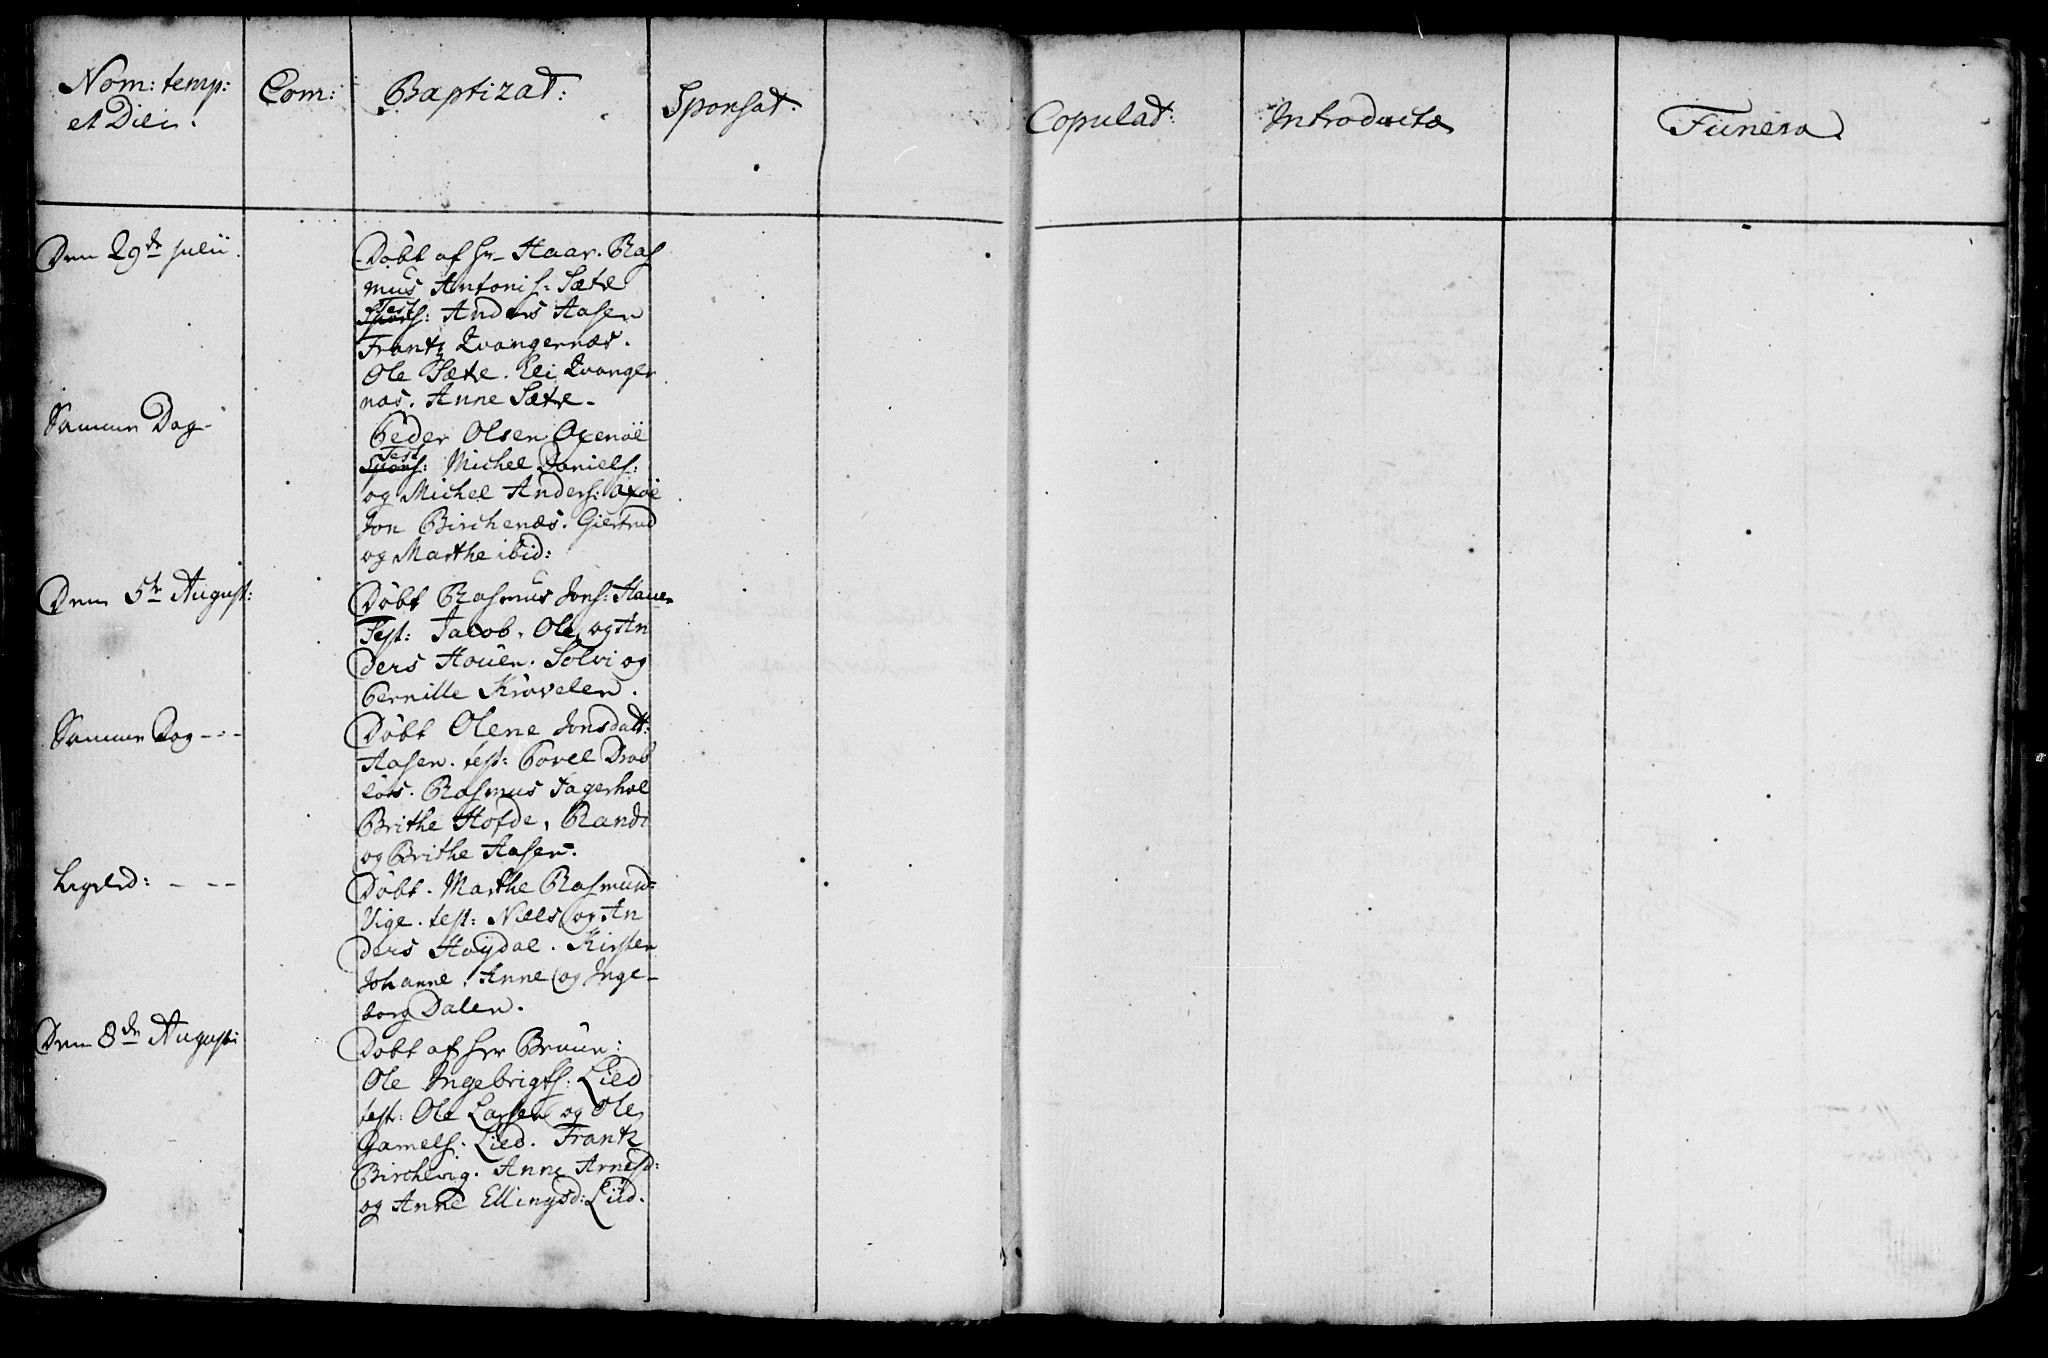 Nom: temp:
et Diei.
Com:
Baptizat:
Sponsat.
Copulat:
Introductæ
Funera.
Den 29de julii.
Døbt af Hr Haar. Ras
mus Antonis: Sætre
Spons: Test Anders Aasen
Frantz Qvangernæs.
Ole Sætre. Eli Qvanger
næs. Anne Sætre.
Samme Dag
Peder Olsen Oxenöe
Spons: Test Michel Daniels:
og Michel Anders: Oxöe
Jon Birchenæs. Giertrud
og Marthe ibid:
Den 5te August:
Døbt Rasmus Jons: Haue
Test: Jacob, Ole og An
ders Houen. Solvi og
Pernille Krøvelen.
Samme Dag - - -
Døbt Olene Jonsdatt:
Aasen. test: Povel Drab
løs. Rasmus Fagerhol
Brithe Hofde, Randi
og Brithe Aasen.
Ligeled: - - -
Døbt. Marthe Rasmusd:
Vige. test: Niels og An
ders Høydal. Kirsten
Johanne, Anne og Inge-
borg Dalen.
Den 8de August:
Døbt af Hrr Bruun:
Ole Ingebrigts: Lied
test: Ole Larsen og Ole
Gamels: Lied. Frantz
Birchevig. Anne Arnesd:
og Anne Ellingsd: Liid.